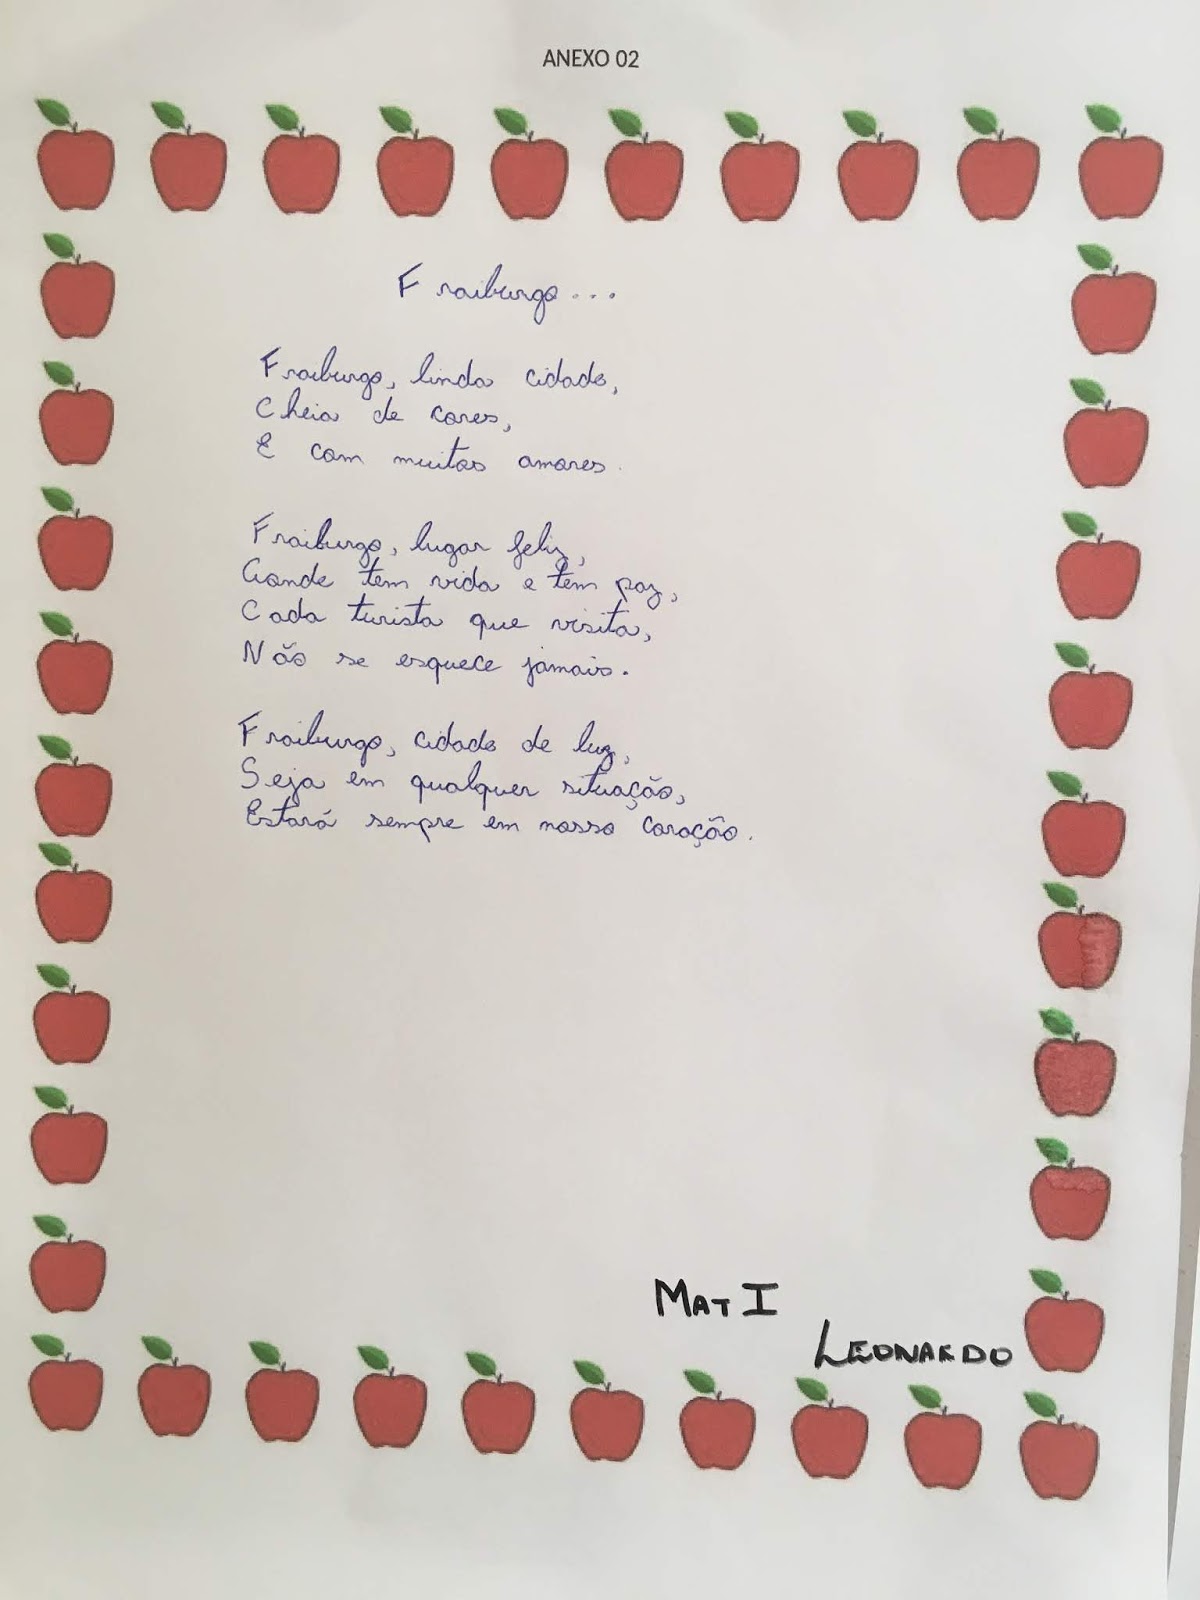 ANEXO 02
Fraiburgo...
Fraiburgo, linda cidade,
Cheia de cores,
E com muitos amores.
Fraiburgo, lugar feliz,
Aonde tem vida e tem paz,
Cada turista que visita,
Não se esquece jamais.
Fraiburgo, cidade de luz,
Seja em qualquer situação,
Estará sempre em nosso coração.
MAT I
LEONARDO